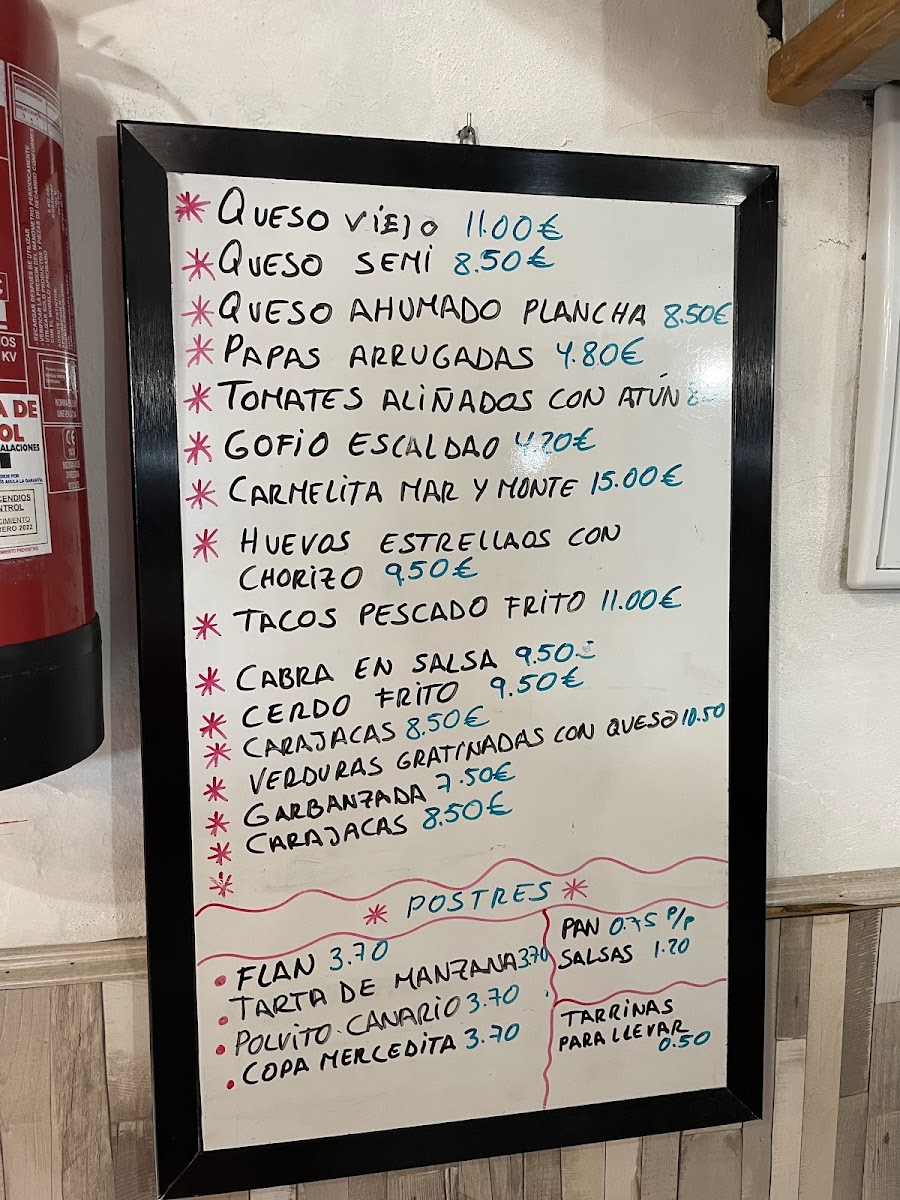 * QUESO VIEJO 11.00€
* QUESO SEMI 8.50€
* QUESO AHUMADO PLANCHA 8.50€
* PAPAS ARRUGADAS 4.80€
* TOMATES ALIÑADOS CON ATÚN
* GOFIO ESCALDAO 4.20€
* CARMELITA MAR Y MONTE 15.00€
* HUEVOS ESTRELLAOS CON
CHORIZO 9.50€
* TACOS PESCADO FRITO 11.00€
* CABRA EN SALSA 9.50
* CERDO FRITO 9.50€
* CARAJACAS 8.50€
* VERDURAS GRATINADAS CON QUESO 10.50
* GARBANZADA 7.50€
* CARAJACAS 8.50€
*
* POSTRES *
• FLAN 3.70
• TARTA DE MANZANA 3.70
• POLVITO CANARIO 3.70
• COPA MERCEDITA 3.70
PAN 0.75 P/P
SALSAS 1.20
TARRINAS
PARA LLEVAR
0.50
KV
A DE
OL
ALACIONES
CENDIOS
NTROL
CIMIENTO
RERO 2022